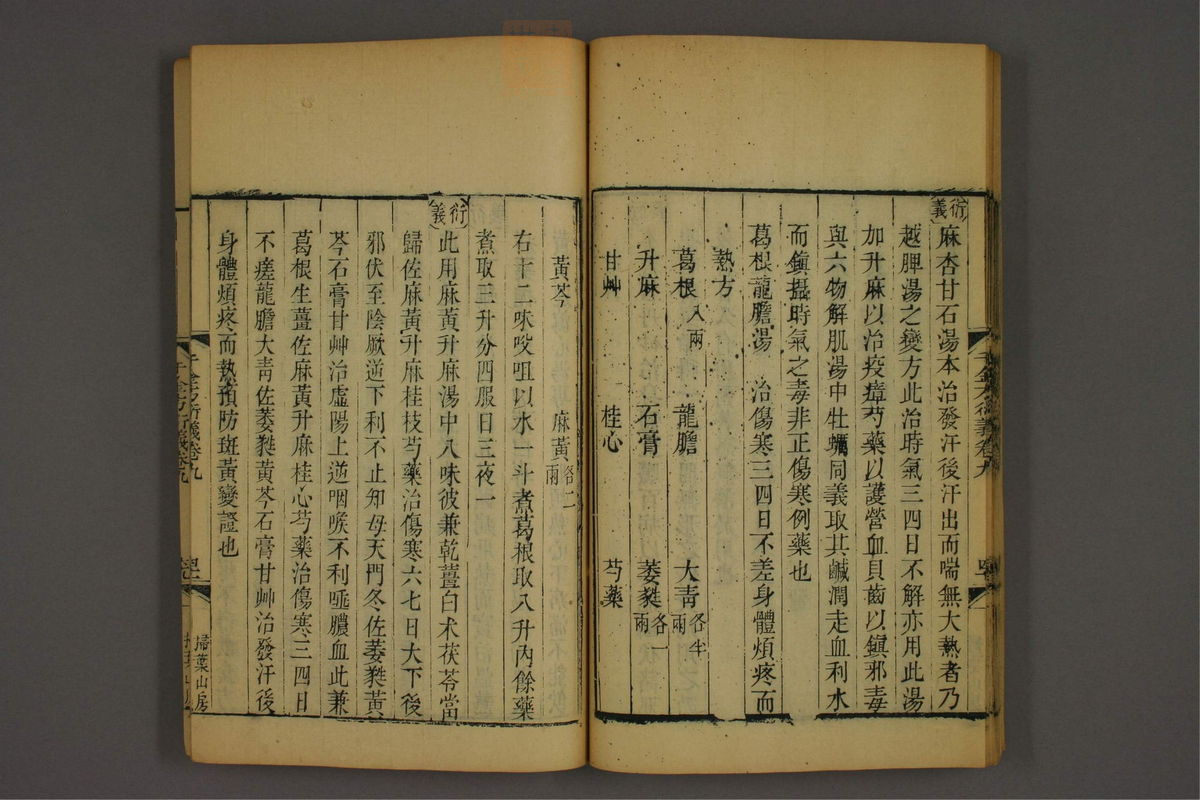 衍義 麻杏甘石湯本治發汗後汗出而喘無大熱者乃
越脾湯之變方此治時氣三四日不解亦用此湯
加升麻以治疫瘴芍藥以護營血貝齒以鎮邪毒
與六物解肌湯中牡蠣同義取其鹹潤走血利水
而鎮攝時氣之毒非正傷寒例藥也
葛根龍膽湯 治傷寒三四日不差身體煩疼而
熱方
葛根八兩 龍膽 大青各半兩
升麻 石膏 萎蕤各一兩
甘艸 桂心 芍藥
黃芩 麻黃各二兩
右十二味㕮咀以水一斗煮葛根取八升內餘藥
煮取三升分四服日三夜一
衍義 此用麻黃升麻湯中八味彼兼乾薑白朮茯苓當
歸佐麻黃升麻桂枝芍藥治傷寒六七日大下後
邪伏至陰厥逆下利不止知母天門冬佐萎蕤黃
芩石膏甘艸治虛陽上逆咽喉不利唾膿血此兼
葛根生薑佐麻黃升麻桂心芍藥治傷寒三四日
不瘥龍膽大青佐萎蕤黃芩石膏甘艸治發汗後
身體煩疼而熱預防斑黃變證也
千金方衍義卷九
掃葉山房